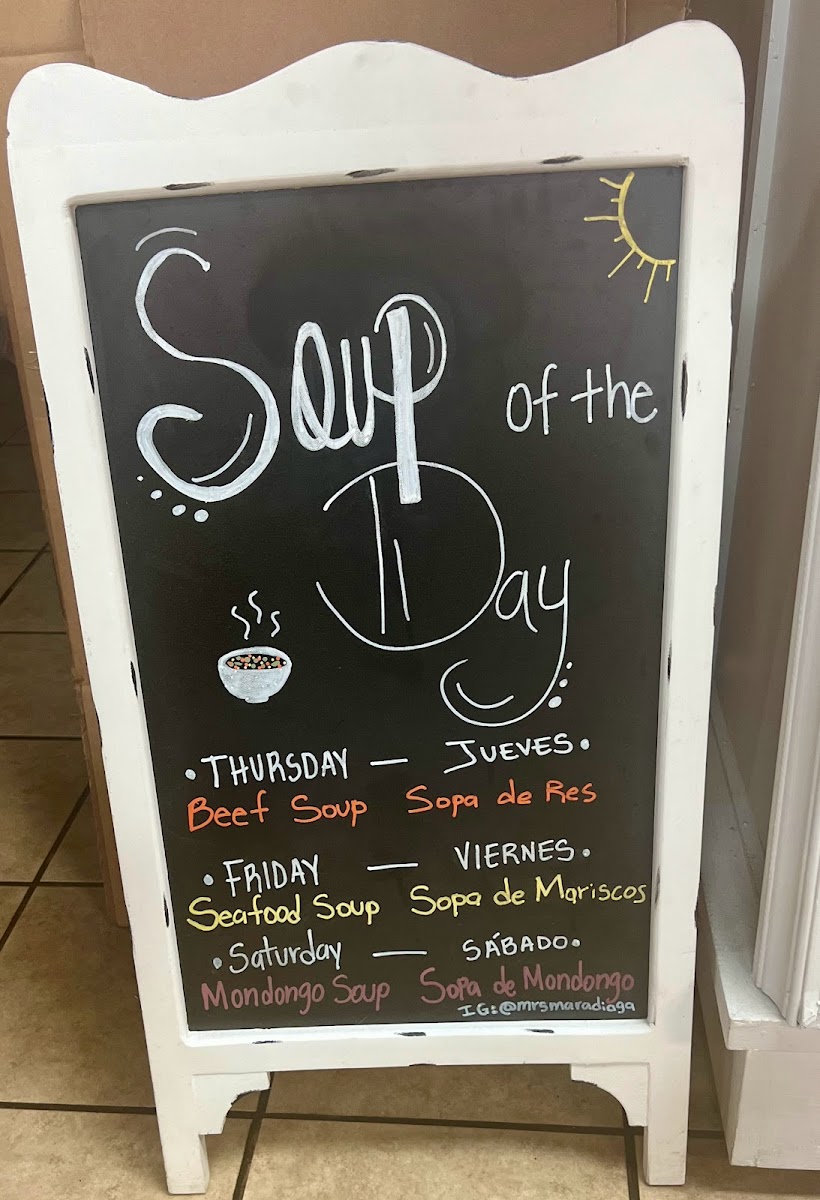 Soup of the
Day
• THURSDAY — JUEVES •
Beef Soup Sopa de Res
• FRIDAY — VIERNES •
Seafood Soup Sopa de Mariscos
• Saturday — SÁBADO •
Mondongo Soup Sopa de Mondongo
IG: @mrsmaradiaga